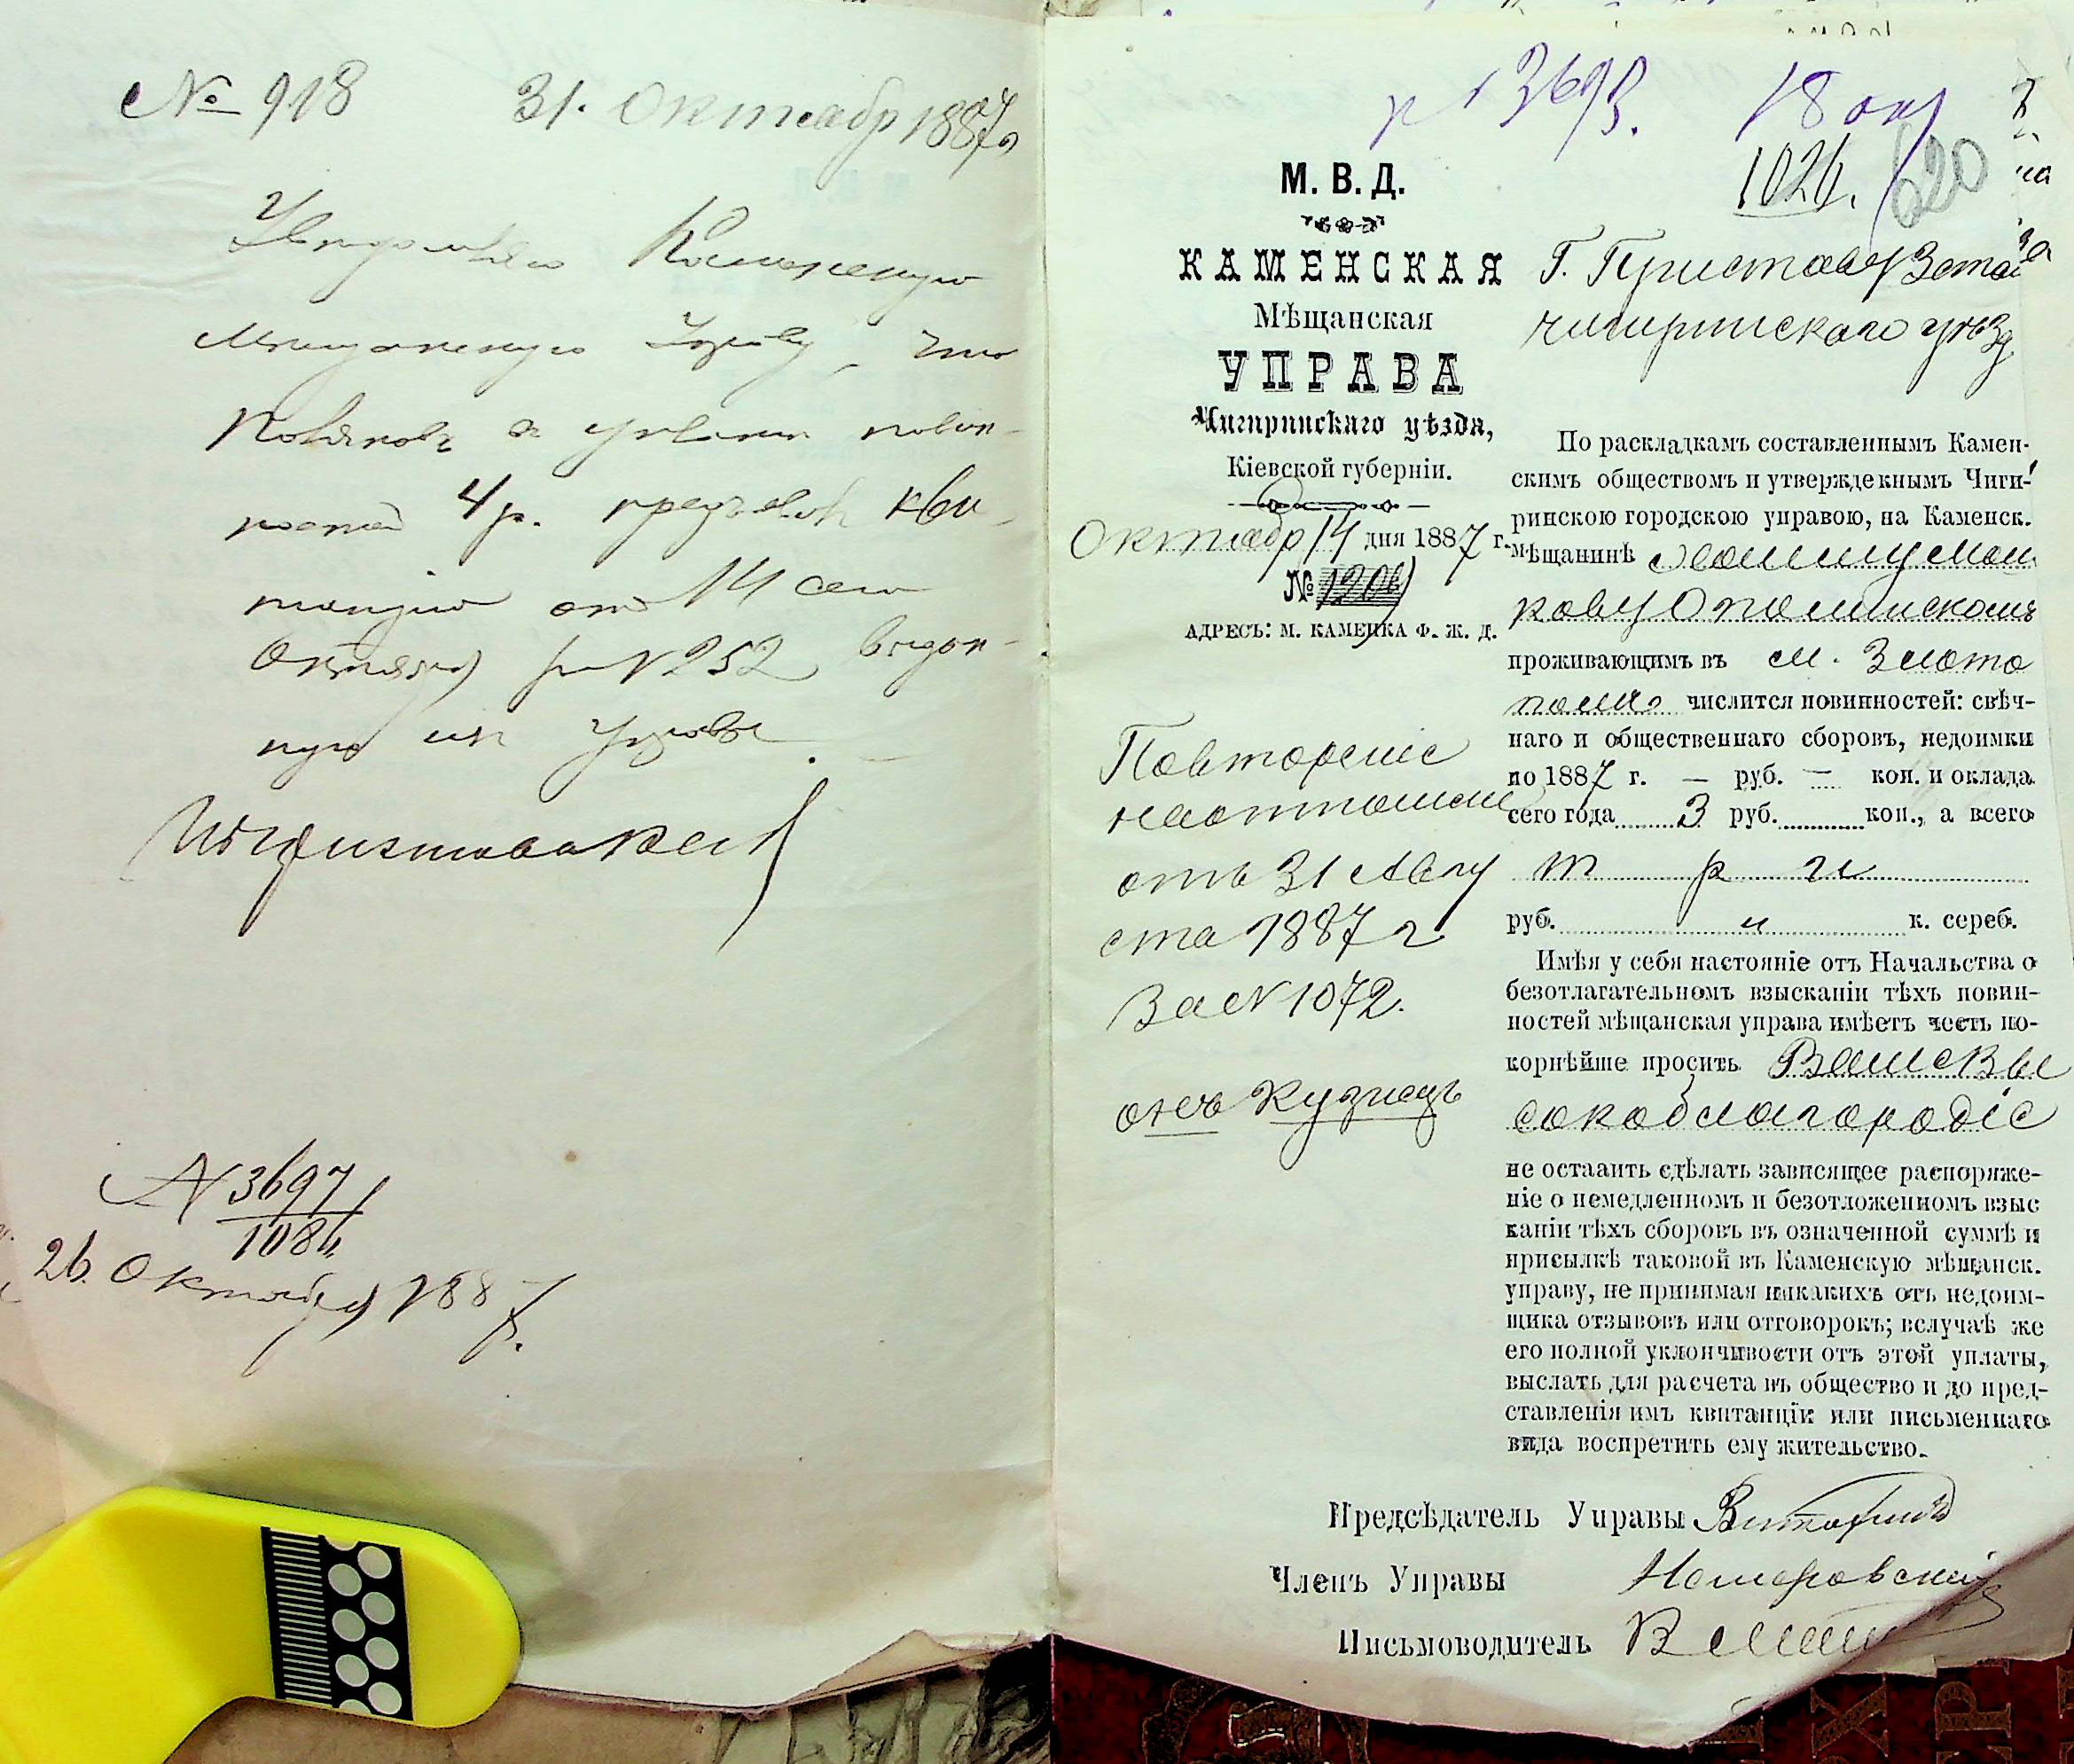 № 918 31. Октября 1887 г.
Увѣдомляю Каменскую
Мѣщанскую Управу, что
4 р. кви-
танцію отъ 14 сего
Октября за № 252 выдан-
ную изъ Управы.
№ 3697
1086
26. Октября 1887
3693. 18 окт
1026. 620
М. В. Д.
КАМЕНСКАЯ
Мѣщанская
УПРАВА
Чигиринскаго уѣзда,
Кіевской губерніи.
Октября 14 дня 1887 г.
№ 1206
АДРЕСЪ: М. КАМЕНКА Ф. Ж. Д.
Повтореніе
на отношеніе
отъ 31 Авгу
ста 1887 г.
За № 1072.
онъ Кузнецъ
Г. Приставу 3 стана
Чигиринскаго уѣзда
По раскладкамъ составленнымъ Камен-
скимъ обществомъ и утвержденнымъ Чиги-
ринскою городскою управою, на Каменск.
мѣщанинѣ
проживающимъ въ м. Злато
полѣ числится повинностей: свѣч-
наго и общественнаго сборовъ, недоимки
по 1887 г. — руб. — коп. и оклада
сего года 3 руб. коп., а всего
три
руб. и к. сереб.
Имѣя у себя настояніе отъ Начальства о
безотлагательномъ взысканіи тѣхъ повин-
ностей мѣщанская управа имѣетъ честь по-
корнѣйше просить Ваше Вы
сокоблагородіе
не оставить сдѣлать зависящее распоряже-
ніе о немедленномъ и безотложенномъ взыс
каніи тѣхъ сборовъ въ означенной суммѣ и
присылкѣ таковой въ Каменскую мѣщанск.
управу, не принимая никакихъ отъ недоим-
щика отзывовъ или отговорокъ; вслучаѣ же
его полной уклончивости отъ этой уплаты,
выслать для расчета въ общество и до пред-
ставленія имъ квитанціи или письменнаго
вида воспретить ему жительство.
Предсѣдатель Управы
Членъ Управы
Письмоводитель